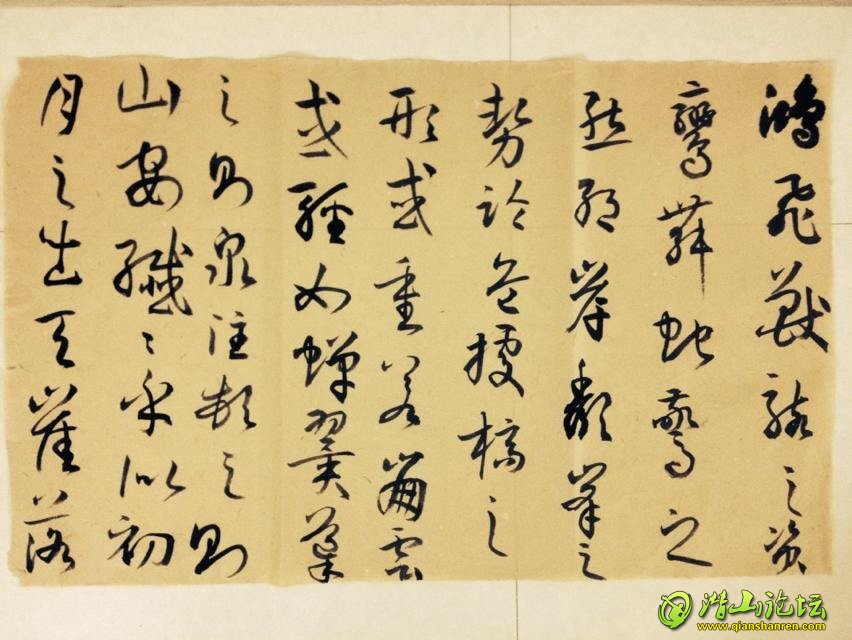 鴻飛獸駭之資
鸞舞蛇驚之
態絕岸頹峯之
勢臨危據槁之
形或重若崩雲
或輕如蟬翼導
之則泉注頓之則
山安纖々乎似初
月之出天崖落
潜山论坛
www.qianshanren.com